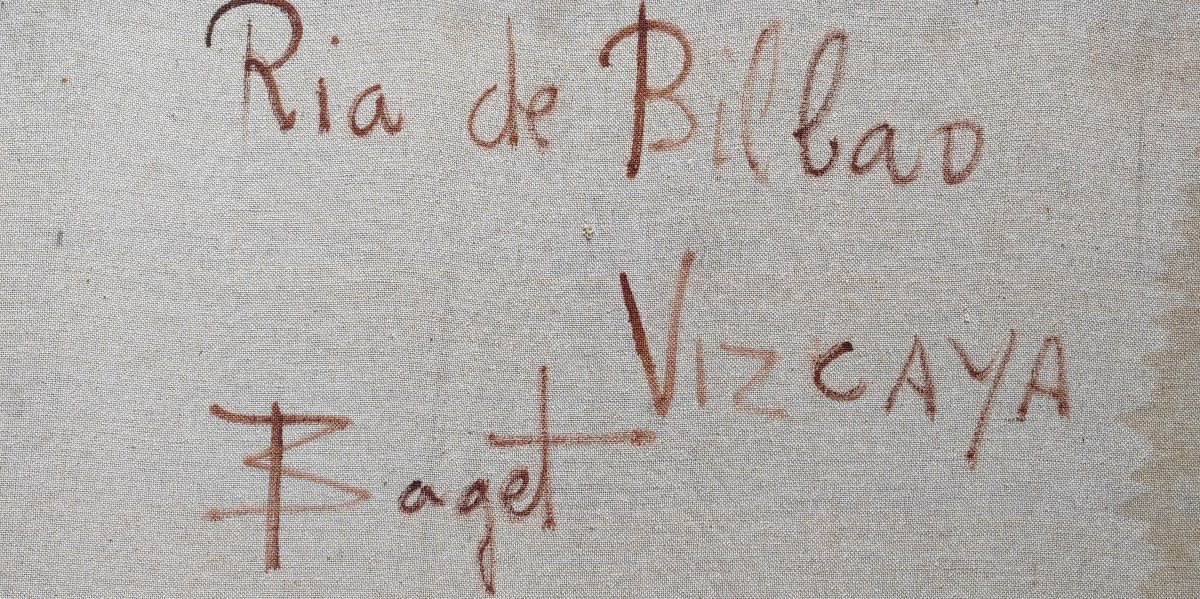 Ria de Bilbao
VIZCAYA
Baget